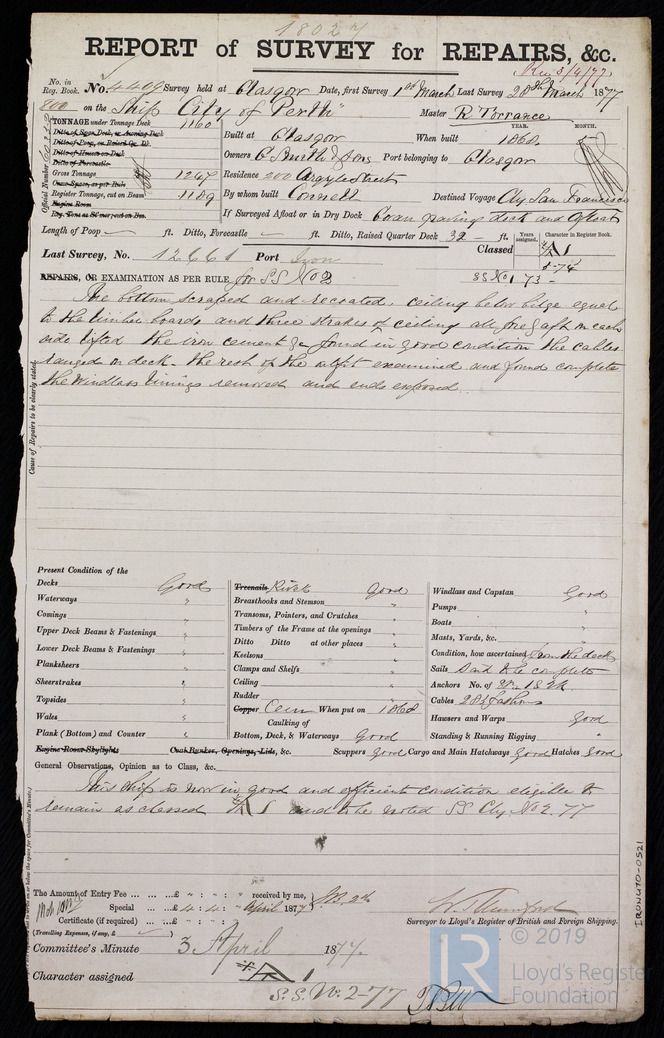 18027
REPORT of SURVEY for REPAIRS, &c.
Rec 3/4/77
No. in Reg. Book. No. 4409 Survey held at Glasgow Date, first Survey 1st March Last Survey 28th March 1877
800 on the Ship "City of Perth" Master R Torrance
TONNAGE under Tonnage Deck 1160
Ditto of Spar Deck, or Awning Deck
Ditto of Poop, or Raised Qr. Dk.
Ditto of House on Deck
Ditto of Forecastle
Gross Tonnage 1247
Crew Space, as per Rule
Register Tonnage, cut on Beam 1189
Engine Room
Reg. Tons as St'mer, cut on Bm.
Official Number
YEAR. MONTH.
Built at Glasgow When built 1868 5
Owners G Smith & Sons Port belonging to Glasgow
Residence 200 Argyle Street
By whom built Connell Destined Voyage Cly San Francisco
If Surveyed Afloat or in Dry Dock Govan graving dock and afloat
Length of Poop — ft. Ditto, Forecastle — ft. Ditto, Raised Quarter Deck 32 — ft.
Years assigned. Character in Register Book.
Last Survey, No. 12661 Port Iron Classed A 1
5-74
REPAIRS, OR EXAMINATION AS PER RULE for SS No 2 SS No 1 73 -
The bottom scraped and recoated, ceiling below bilge equal
to the limber boards and three strakes of ceiling all fore & aft on each
side lifted the iron cement &c found in good condition the cables
ranged on deck. the rest of the outfit examined and found complete
the windlass linings removed and ends exposed.
Cause of Repairs to be clearly stated.
Present Condition of the
Decks Good
Waterways "
Comings "
Upper Deck Beams & Fastenings "
Lower Deck Beams & Fastenings "
Planksheers "
Sheerstrakes "
Topsides "
Wales "
Plank (Bottom) and Counter "
Engine Room Skylights Coal Bunker, Openings, Lids, &c.
Treenails Rivets Good
Breasthooks and Stemson "
Transoms, Pointers, and Crutches "
Timbers of the Frame at the openings "
Ditto Ditto at other places "
Keelsons "
Clamps and Shelfs "
Ceiling "
Rudder "
Copper Cem When put on 1868
Caulking of
Bottom, Deck, & Waterways Good
Windlass and Capstan Good
Pumps "
Boats "
Masts, Yards, &c. "
Condition, how ascertained from the deck
Sails Said to be complete
Anchors No. of
Cables 285 fathoms
Hawsers and Warps Good
Standing & Running Rigging "
Scuppers Good Cargo and Main Hatchways Good Hatches Good
General Observations, Opinion as to Class, &c.
This Ship is now in good and efficient condition eligible to
remain as classed A 1 and to be noted SS Cly No 2. 77
The Amount of Entry Fee ... ... £ " : " : " received by me,
Special ... ... £ 4 : 4 : " April 1877
Certificate (if required) ... ... £ " : " : "
(Travelling Expenses, if any, £ )
Surveyor to Lloyd's Register of British and Foreign Shipping.
Committee's Minute 3 April 1877.
Character assigned A 1
S.S. No. 2-77
IRONUTO-0521
LR
© 2019
Lloyd's Register
Foundation